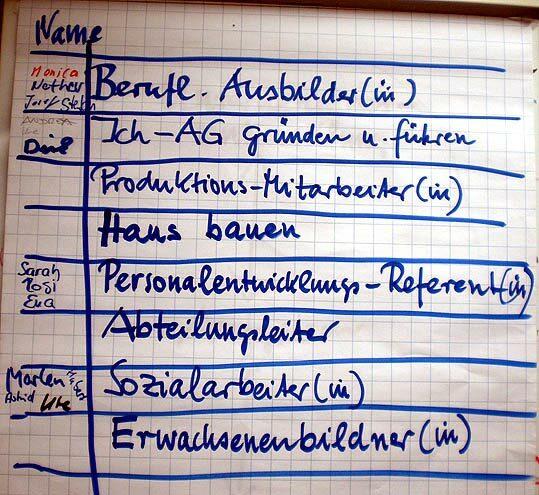 Name
Monica
Berufl. Ausbilder(in)
Josef Stefan
Ich-AG gründen u. führen
Produktions-Mitarbeiter(in)
Haus bauen
Sarah
Rosi
Eva
Personalentwicklungs-Referent(in)
Abteilungsleiter
Marlen
Astrid Ute
Sozialarbeiter(in)
Erwachsenenbildner(in)